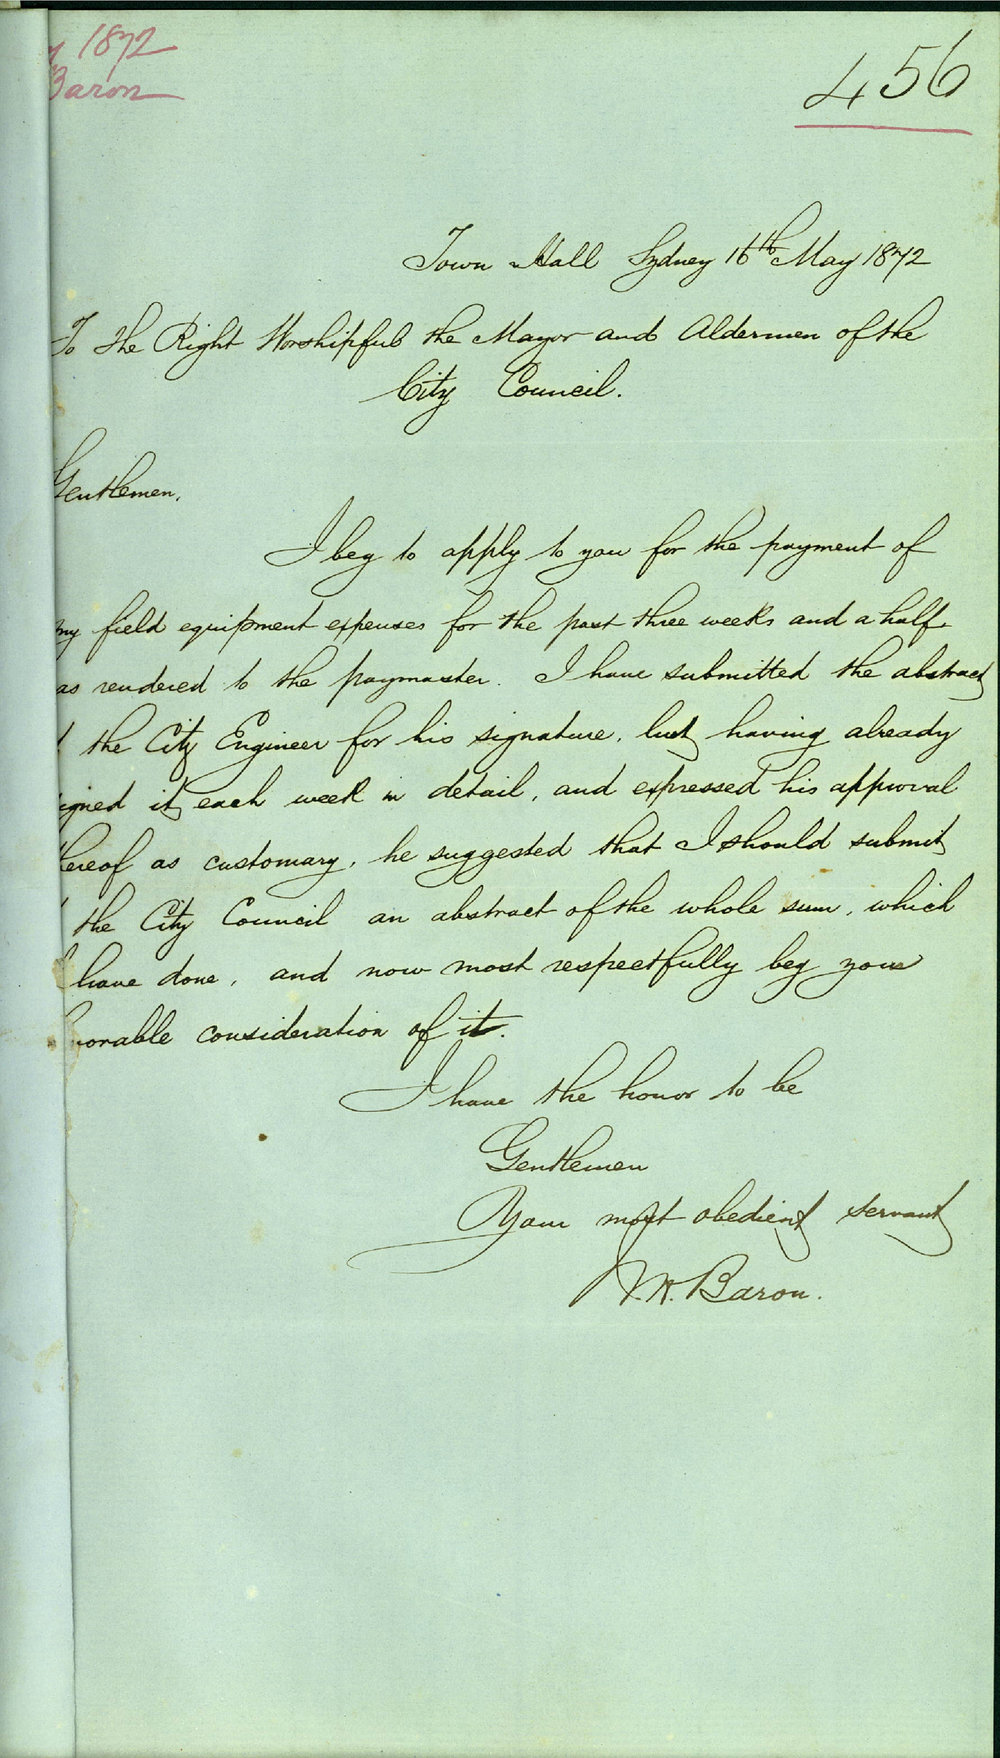 1872
Baron
456
Town Hall Sydney 16th May 1872
To the Right Worshipful the Mayor and Aldermen of the
City Council.
Gentlemen,
I beg to apply to you for the payment of
my field equipment expenses for the past three weeks and a half
as rendered to the paymaster. I have submitted the abstract
the City Engineer for his signature, but having already
igned it each week in detail, and expressed his approval
hereof as customary, he suggested that I should submit
the City Council an abstract of the whole sum, which
I have done, and now most respectfully beg your
vorable consideration of it.
I have the honor to be
Gentlemen
Your most obedient servant
Baron.